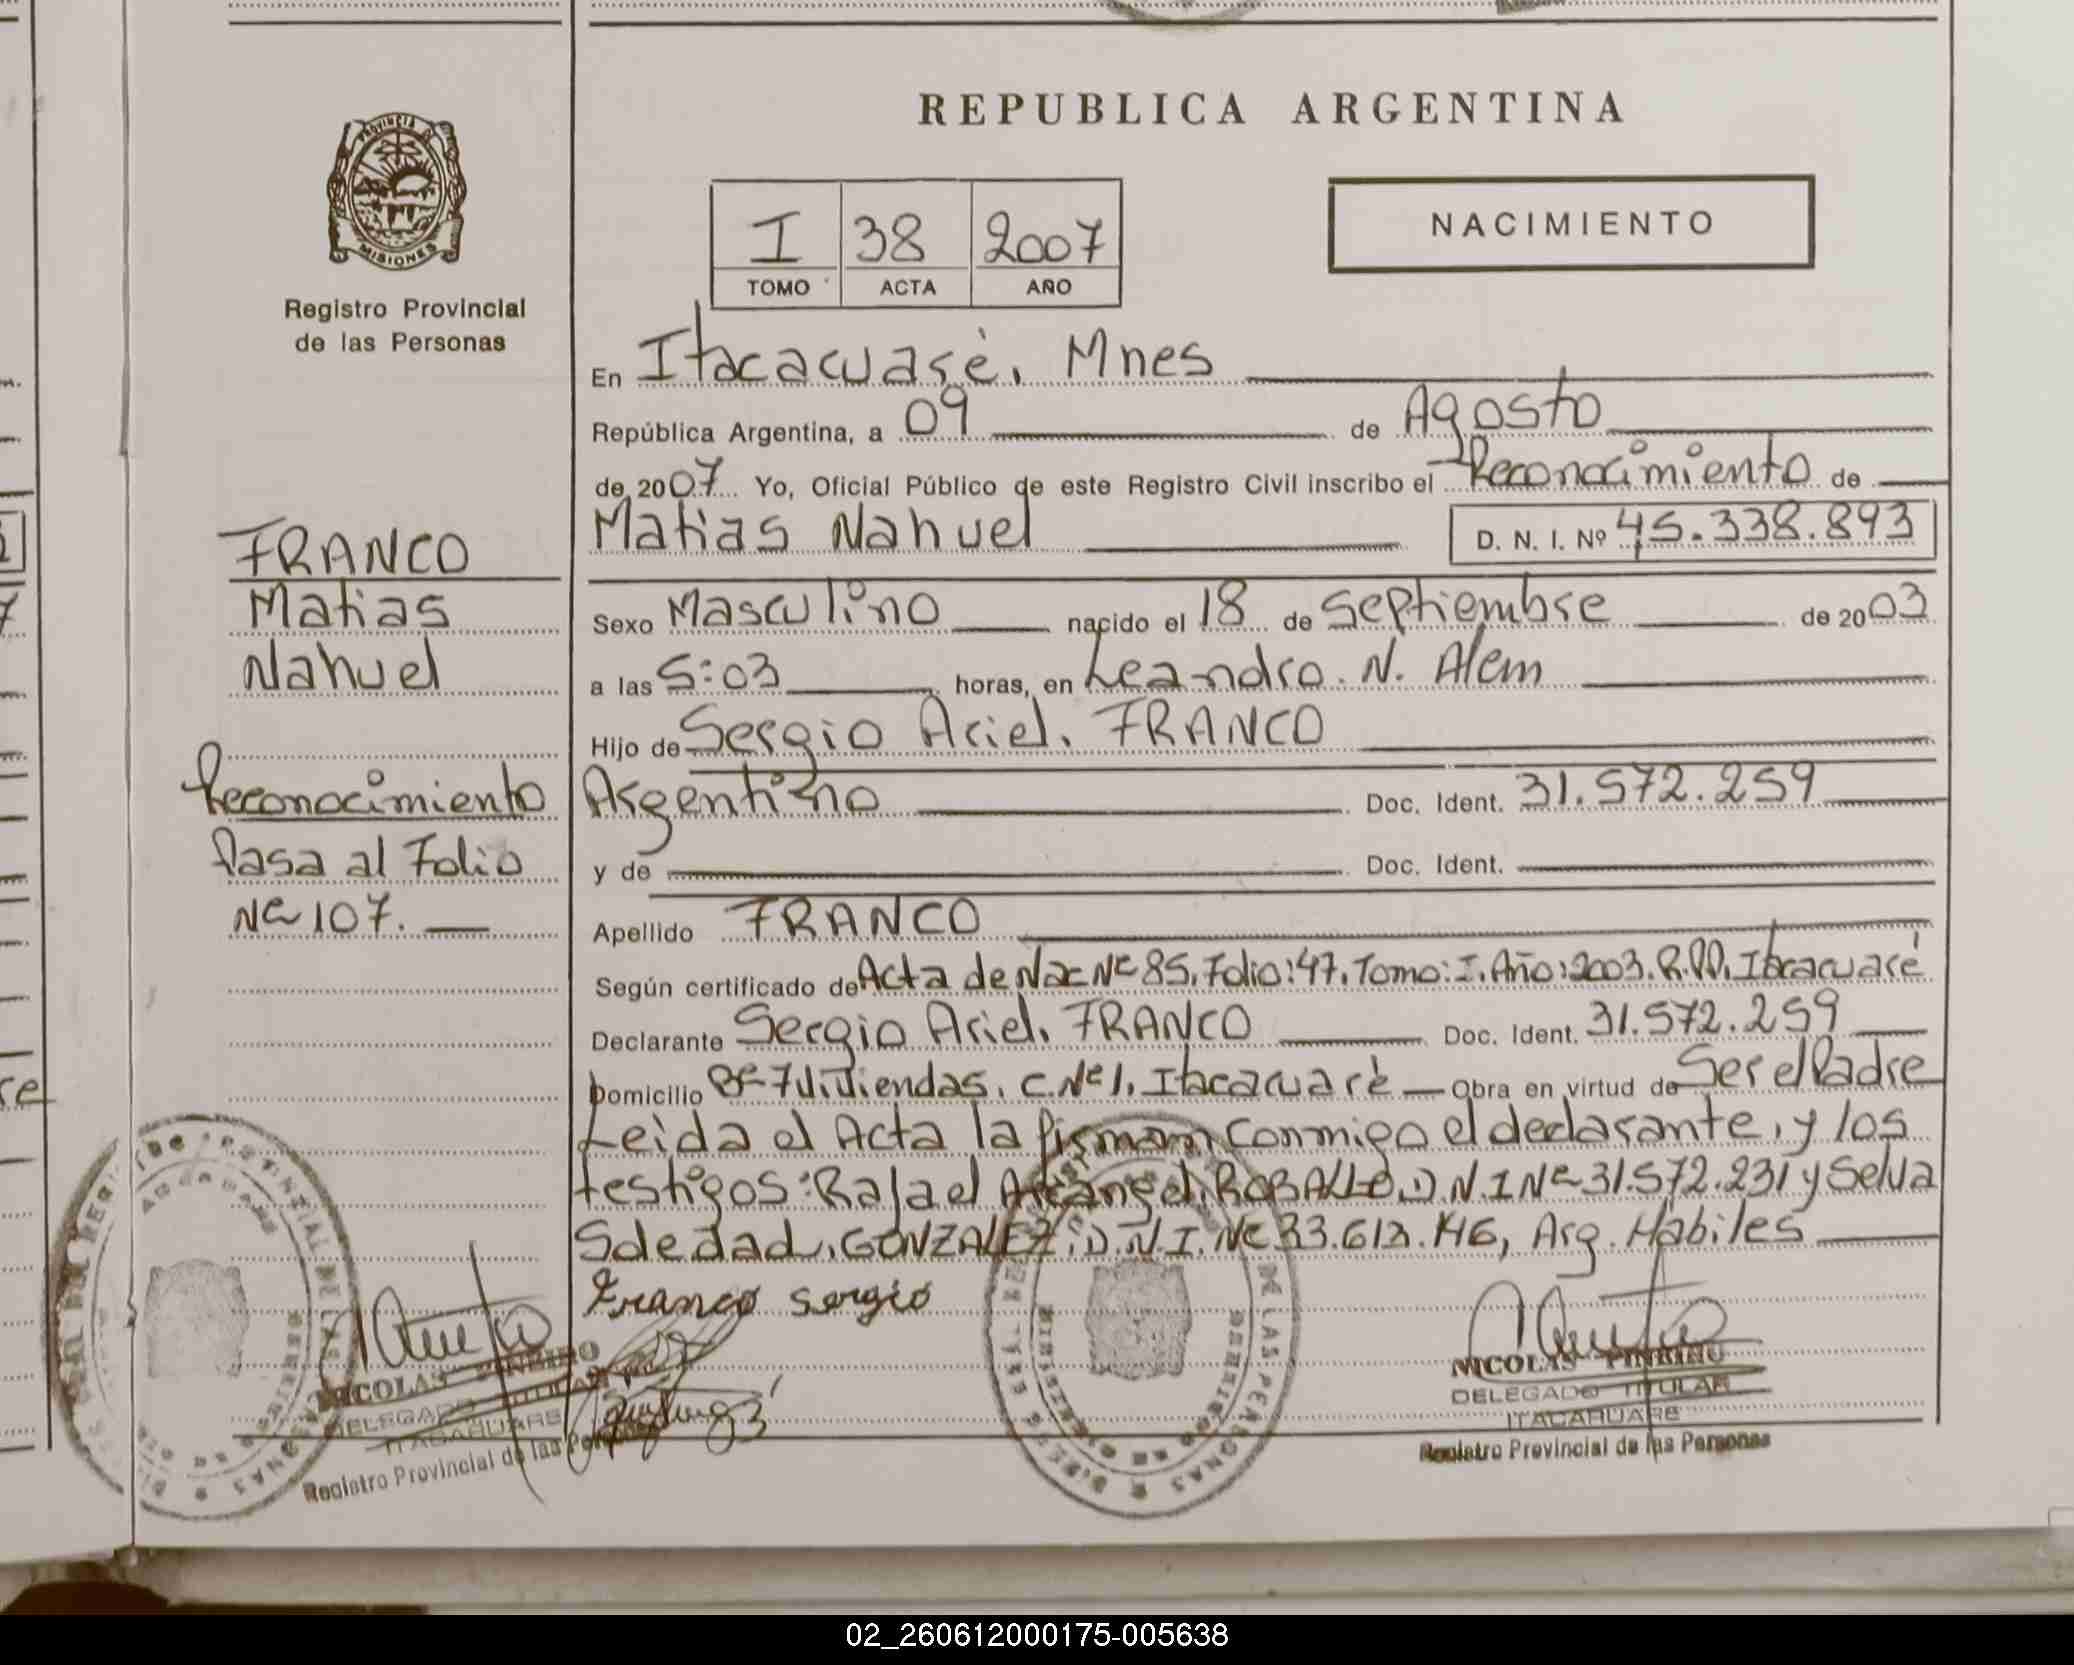 REPUBLICA ARGENTINA
PROVINCIA DE
MISIONES
Registro Provincial
de las Personas
NACIMIENTO
I 38 2007
TOMO ACTA AÑO
En Itacacuasé, Mnes
República Argentina, a 09 de Agosto
de 2007 Yo, Oficial Público de este Registro Civil inscribo el Reconocimiento de
Matias Nahuel D. N. I. Nº 45.338.893
Sexo Masculino nacido el 18 de Septiembre de 2003
a las 5:03 horas, en Leandro. N. Alem
Hijo de Sergio Ariel. FRANCO
Argentino Doc. Ident. 31.572.259
y de Doc. Ident.
Apellido FRANCO
Según certificado de Acta de Nac Nº 85. Folio: 47. Tomo: I. Año: 2003. R.PP. Itacacuaré
Declarante Sergio Ariel. FRANCO Doc. Ident. 31.572.259
Domicilio Bº 7 Viviendas. C. Nº 1. Itacacuaré Obra en virtud de Ser el Padre
Leida el Acta la firman conmigo el declarante, y los
testigos: Rafael Arcangel. ROBALLO. D.N.I Nº 31.572.231 y Selva
Soledad. GONZALEZ. D.N.I. Nº 33.613.146, Arg. Hábiles
Franco sergio
FRANCO
Matias
Nahuel
Reconocimiento
Pasa al Folio
Nº 107.
NICOLAS PIÑEIRO
DELEGADO TITULAR
ITACARUARE
Registro Provincial de las Personas
NICOLAS PIÑEIRO
DELEGADO TITULAR
ITACARUARE
Registro Provincial de las Personas
02_260612000175-005638